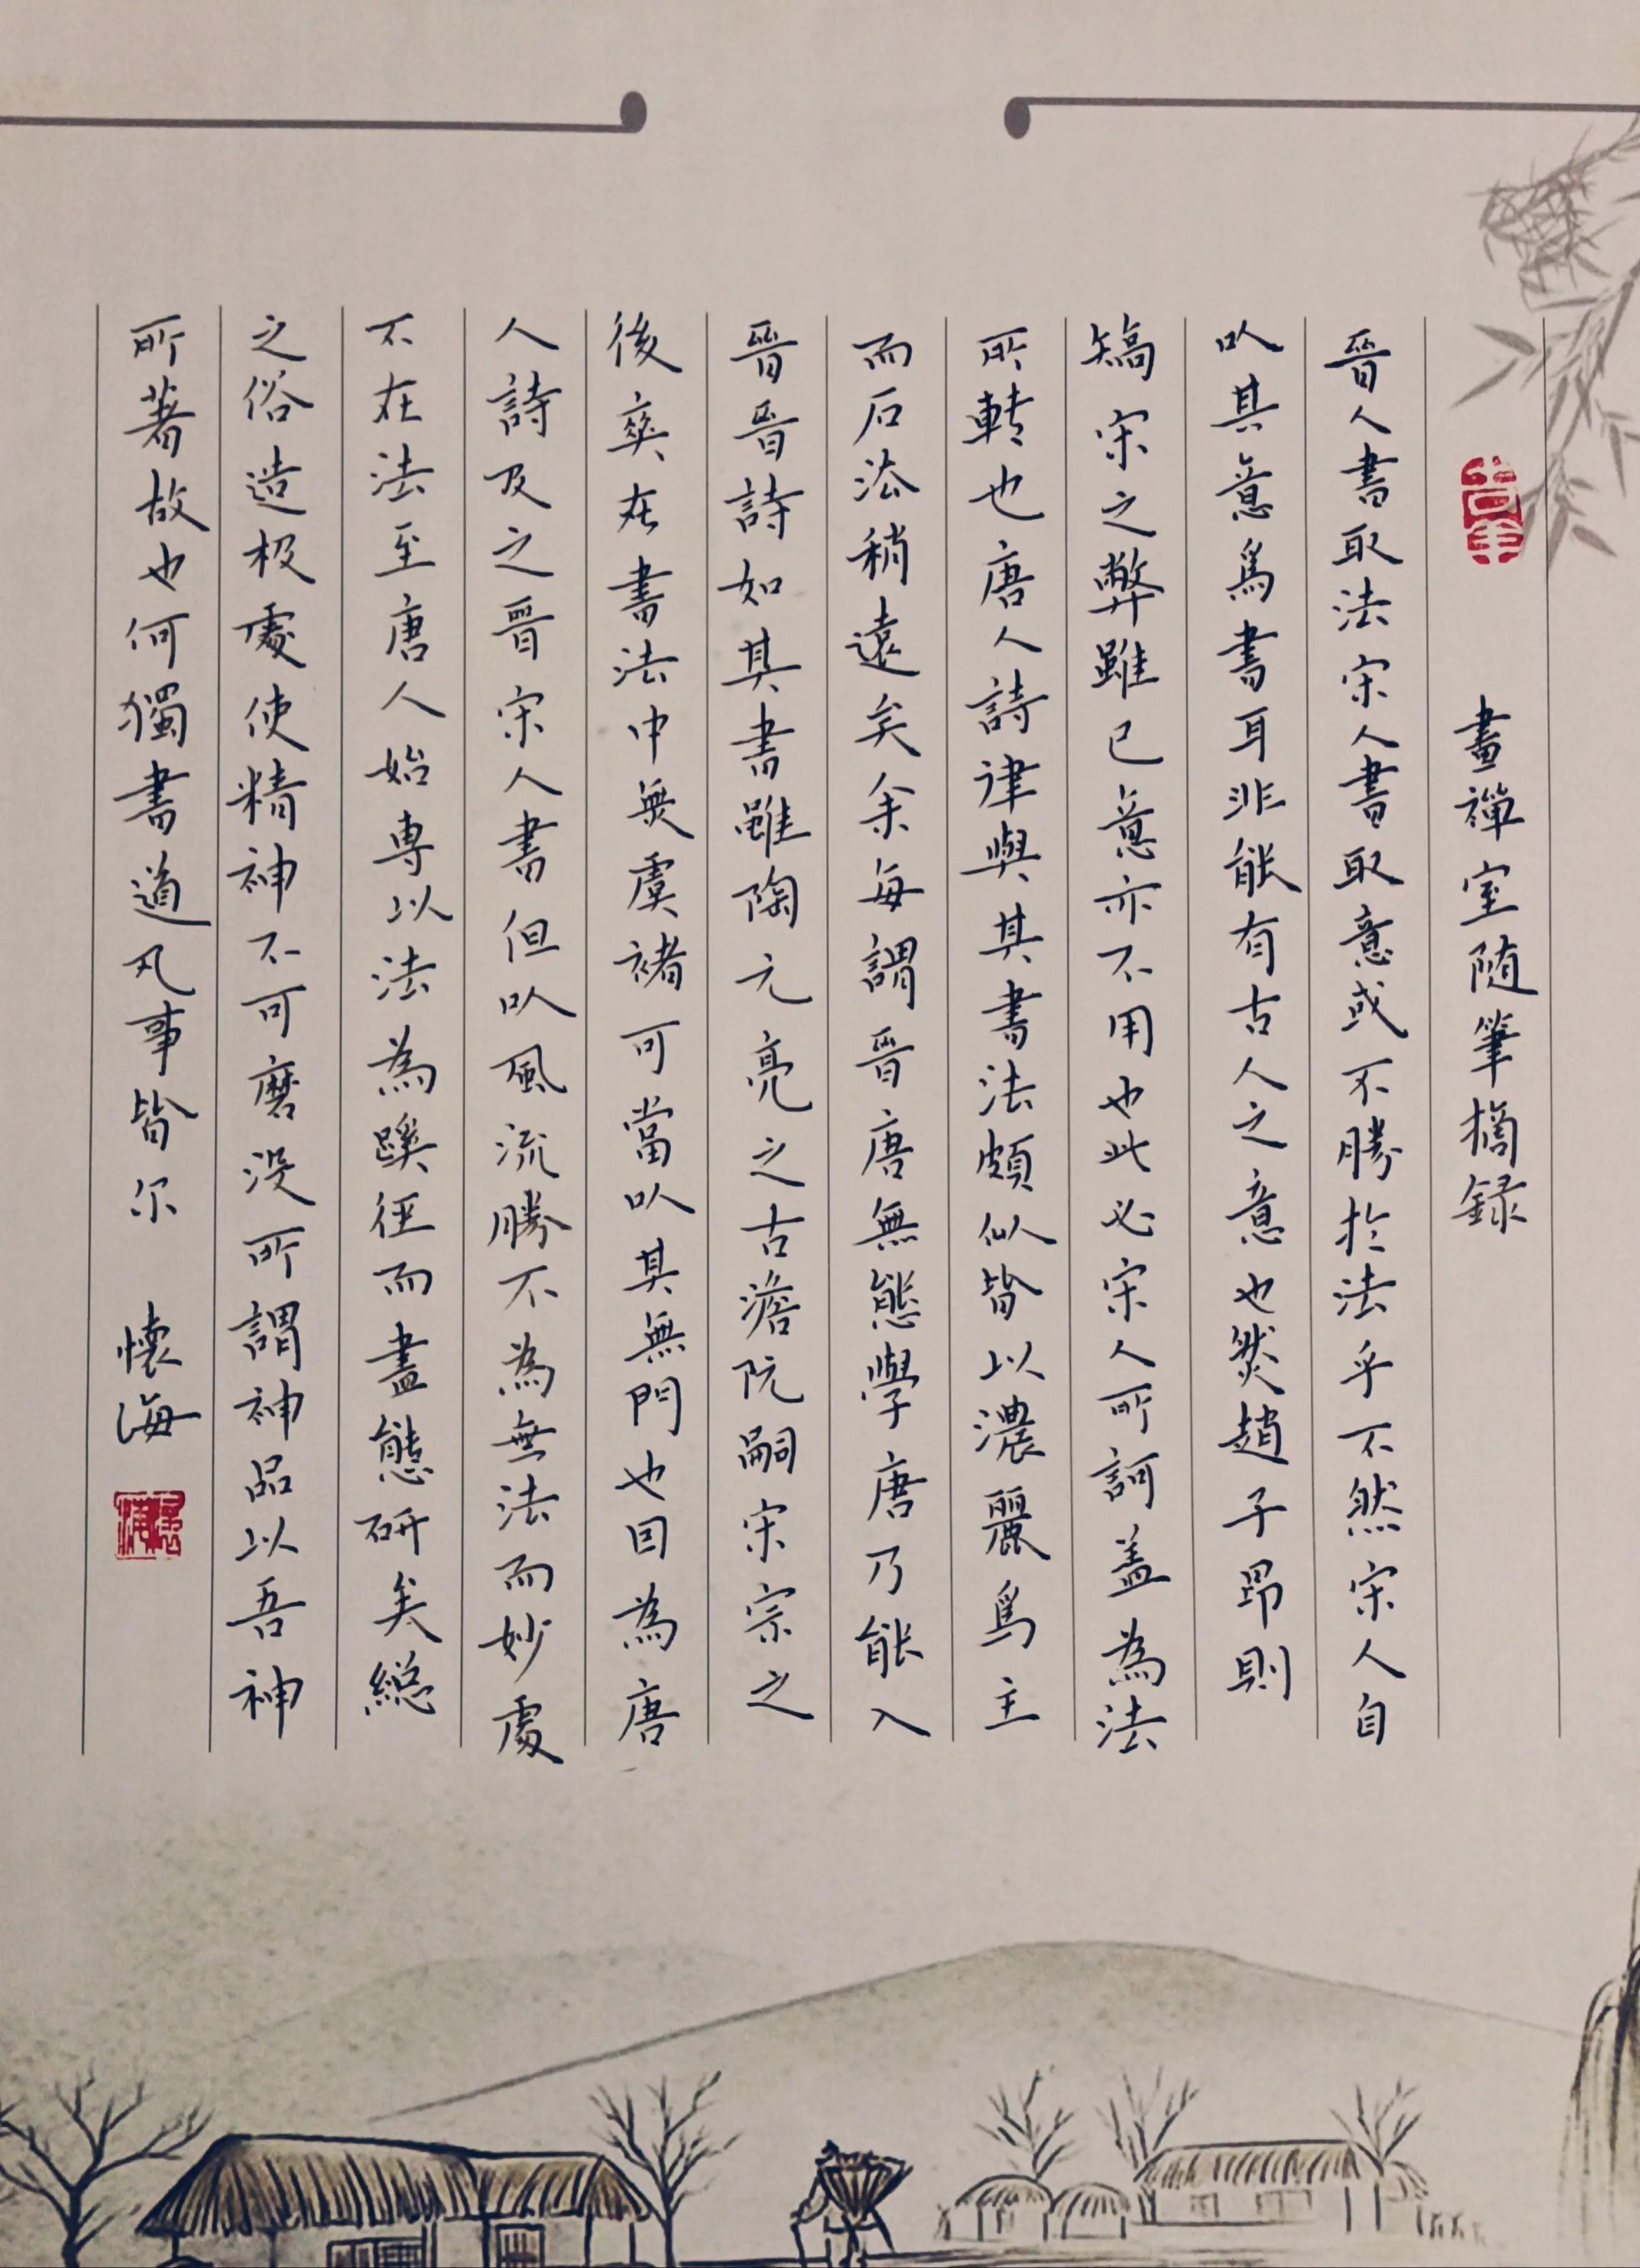 吉羊
畫禪室随筆摘録
晉人書取法宋人書取意或不勝於法乎不然宋人自
以其意爲書耳非能有古人之意也然趙子昂則
矯宋之弊雖己意亦不用也此必宋人所訶盖為法
所轉也唐人詩律與其書法頗似皆以濃麗爲主
而后法稍遠矣余每謂晉唐無態學唐乃能入
晉晉詩如其書雖陶元亮之古澹阮嗣宋宗之
後爽在書法中無虞褚可當以其無門也因為唐
人詩及之晉宋人書但以風流勝不為無法而妙處
不在法至唐人始専以法為蹊径而盡態研矣総
之俗造极處使精神不可磨没所謂神品以吾神
所著故也何獨書道凡事皆尔 懷海